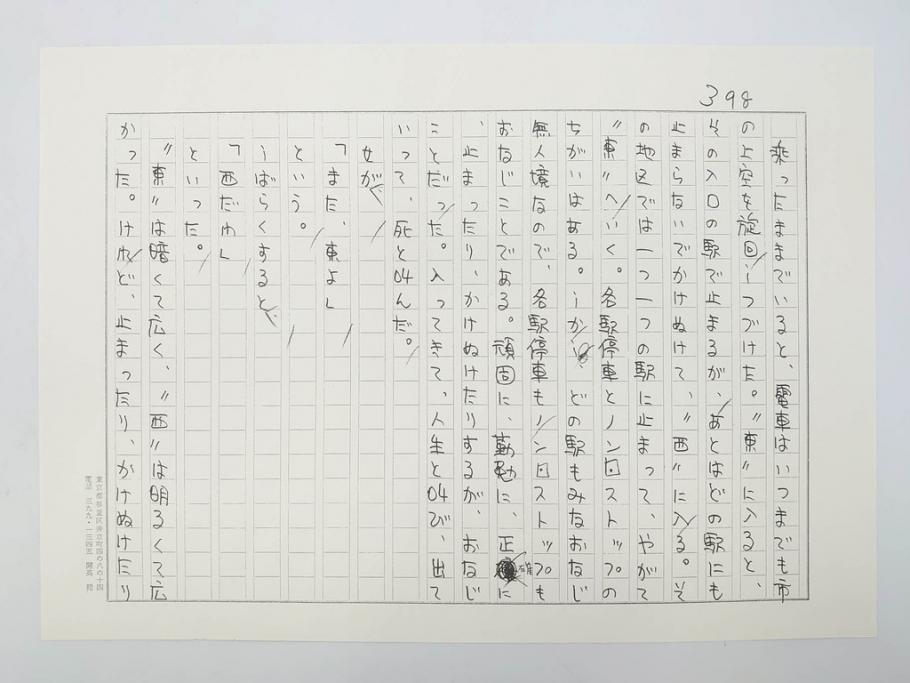 398
乗ったままでいると、電車はいつまでも市
の上空を旋回しつづけた。〃東〃に入ると、
その入口の駅で止まるが、あとはどの駅にも
止まらないでかけぬけて、〃西〃に入る。そ
の地区では一つ一つの駅に止まって、やがて
〃東〃へいく。各駅停車とノン・ストップの
ちがいはある。しかし、どの駅もみなおなじ
無人境なので、各駅停車もノン・ストップも
おなじことである。頑固に、勤勉に、正確に
、止まったり、かけぬけたりするが、おなじ
ことだった。入ってきて、人生と呼び、出て
いって、死と呼んだ。
女が、
「また、東よ」
という。
しばらくすると、
「西だわ」
といった。
〃東〃は暗くて広く、〃西〃は明るくて広
かった。けれど、止まったり、かけぬけたり
東京都杉並区井草町四の八の十四
電話 三九九・一三四五 開高 健